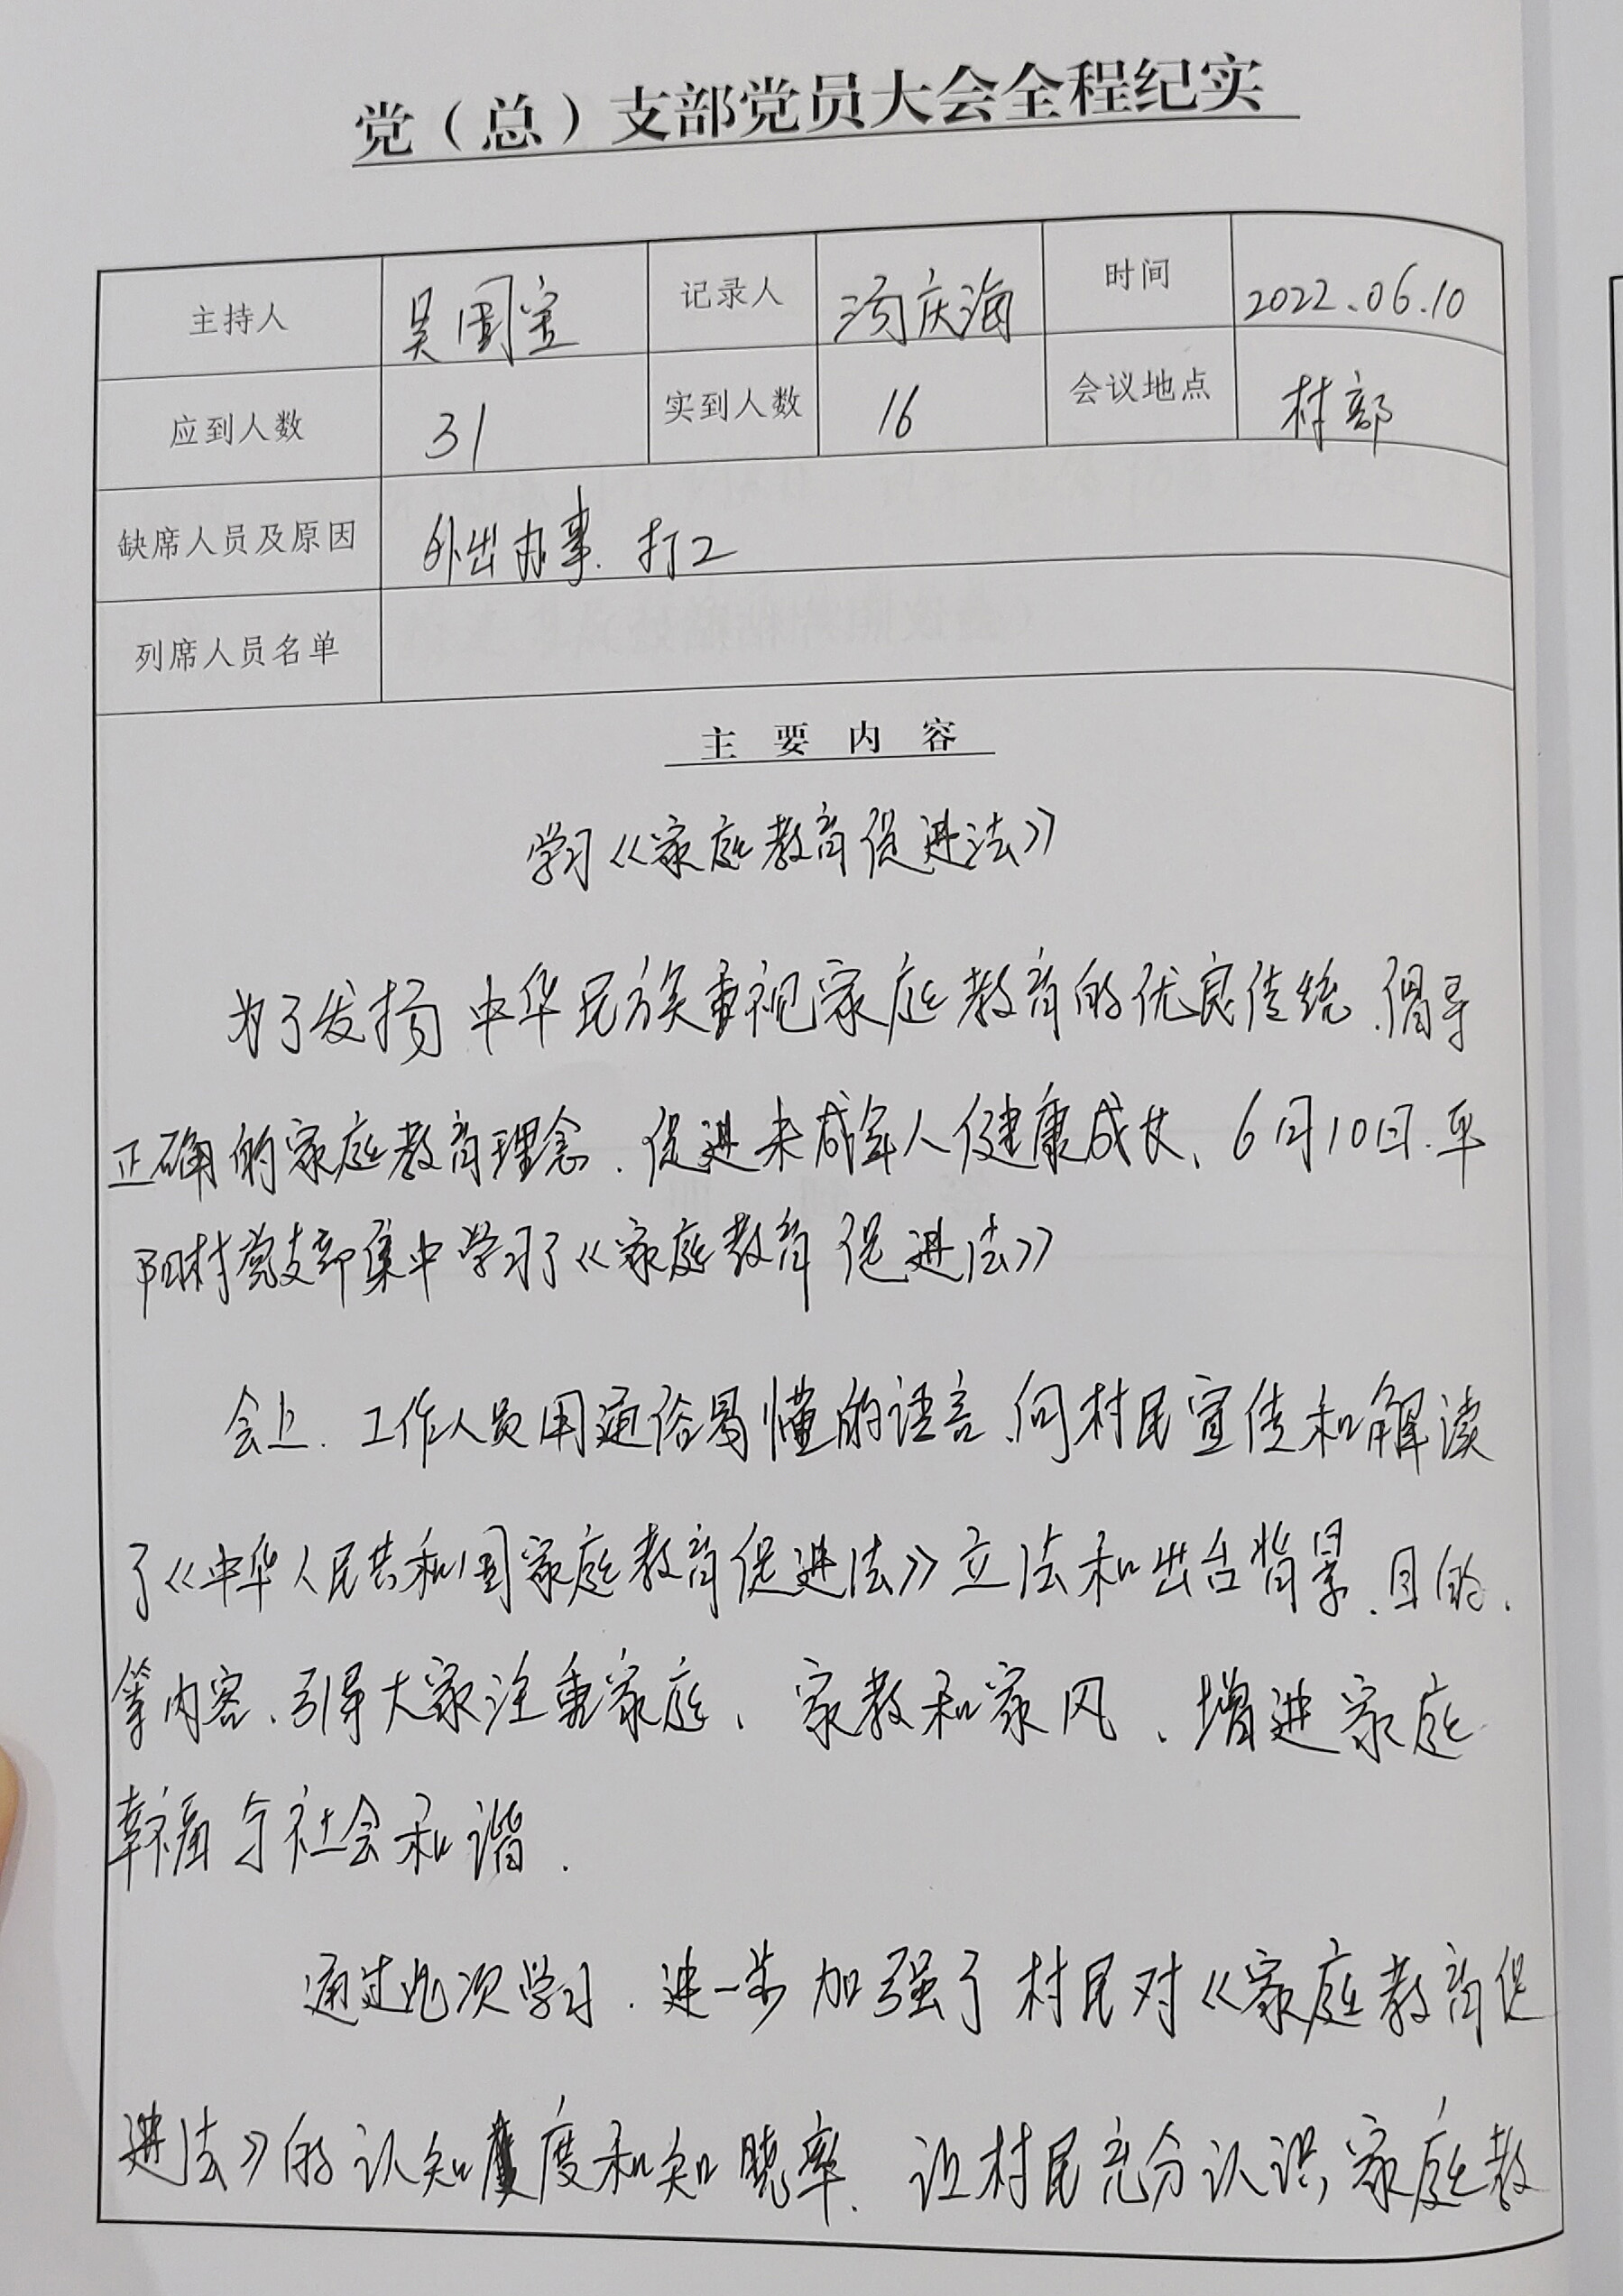 党（总）支部党员大会全程纪实
主持人 吴国宝 记录人 汤庆海 时间 2022.06.10
应到人数 31 实到人数 16 会议地点 村部
缺席人员及原因 外出办事、打工
列席人员名单
主要内容
学习《家庭教育促进法》
为了发扬中华民族重视家庭教育的优良传统、倡导
正确的家庭教育理念、促进未成年人健康成长、6月10日、平
阳村党支部集中学习了《家庭教育促进法》
会上、工作人员用通俗易懂的语言、向村民宣传和解读
了《中华人民共和国家庭教育促进法》立法和出台背景、目的、
等内容、引导大家注重家庭、家教和家风、增进家庭
幸福与社会和谐.
通过此次学习、进一步加强了村民对《家庭教育促
进法》的认知度和知晓率、让村民充分认识家庭教